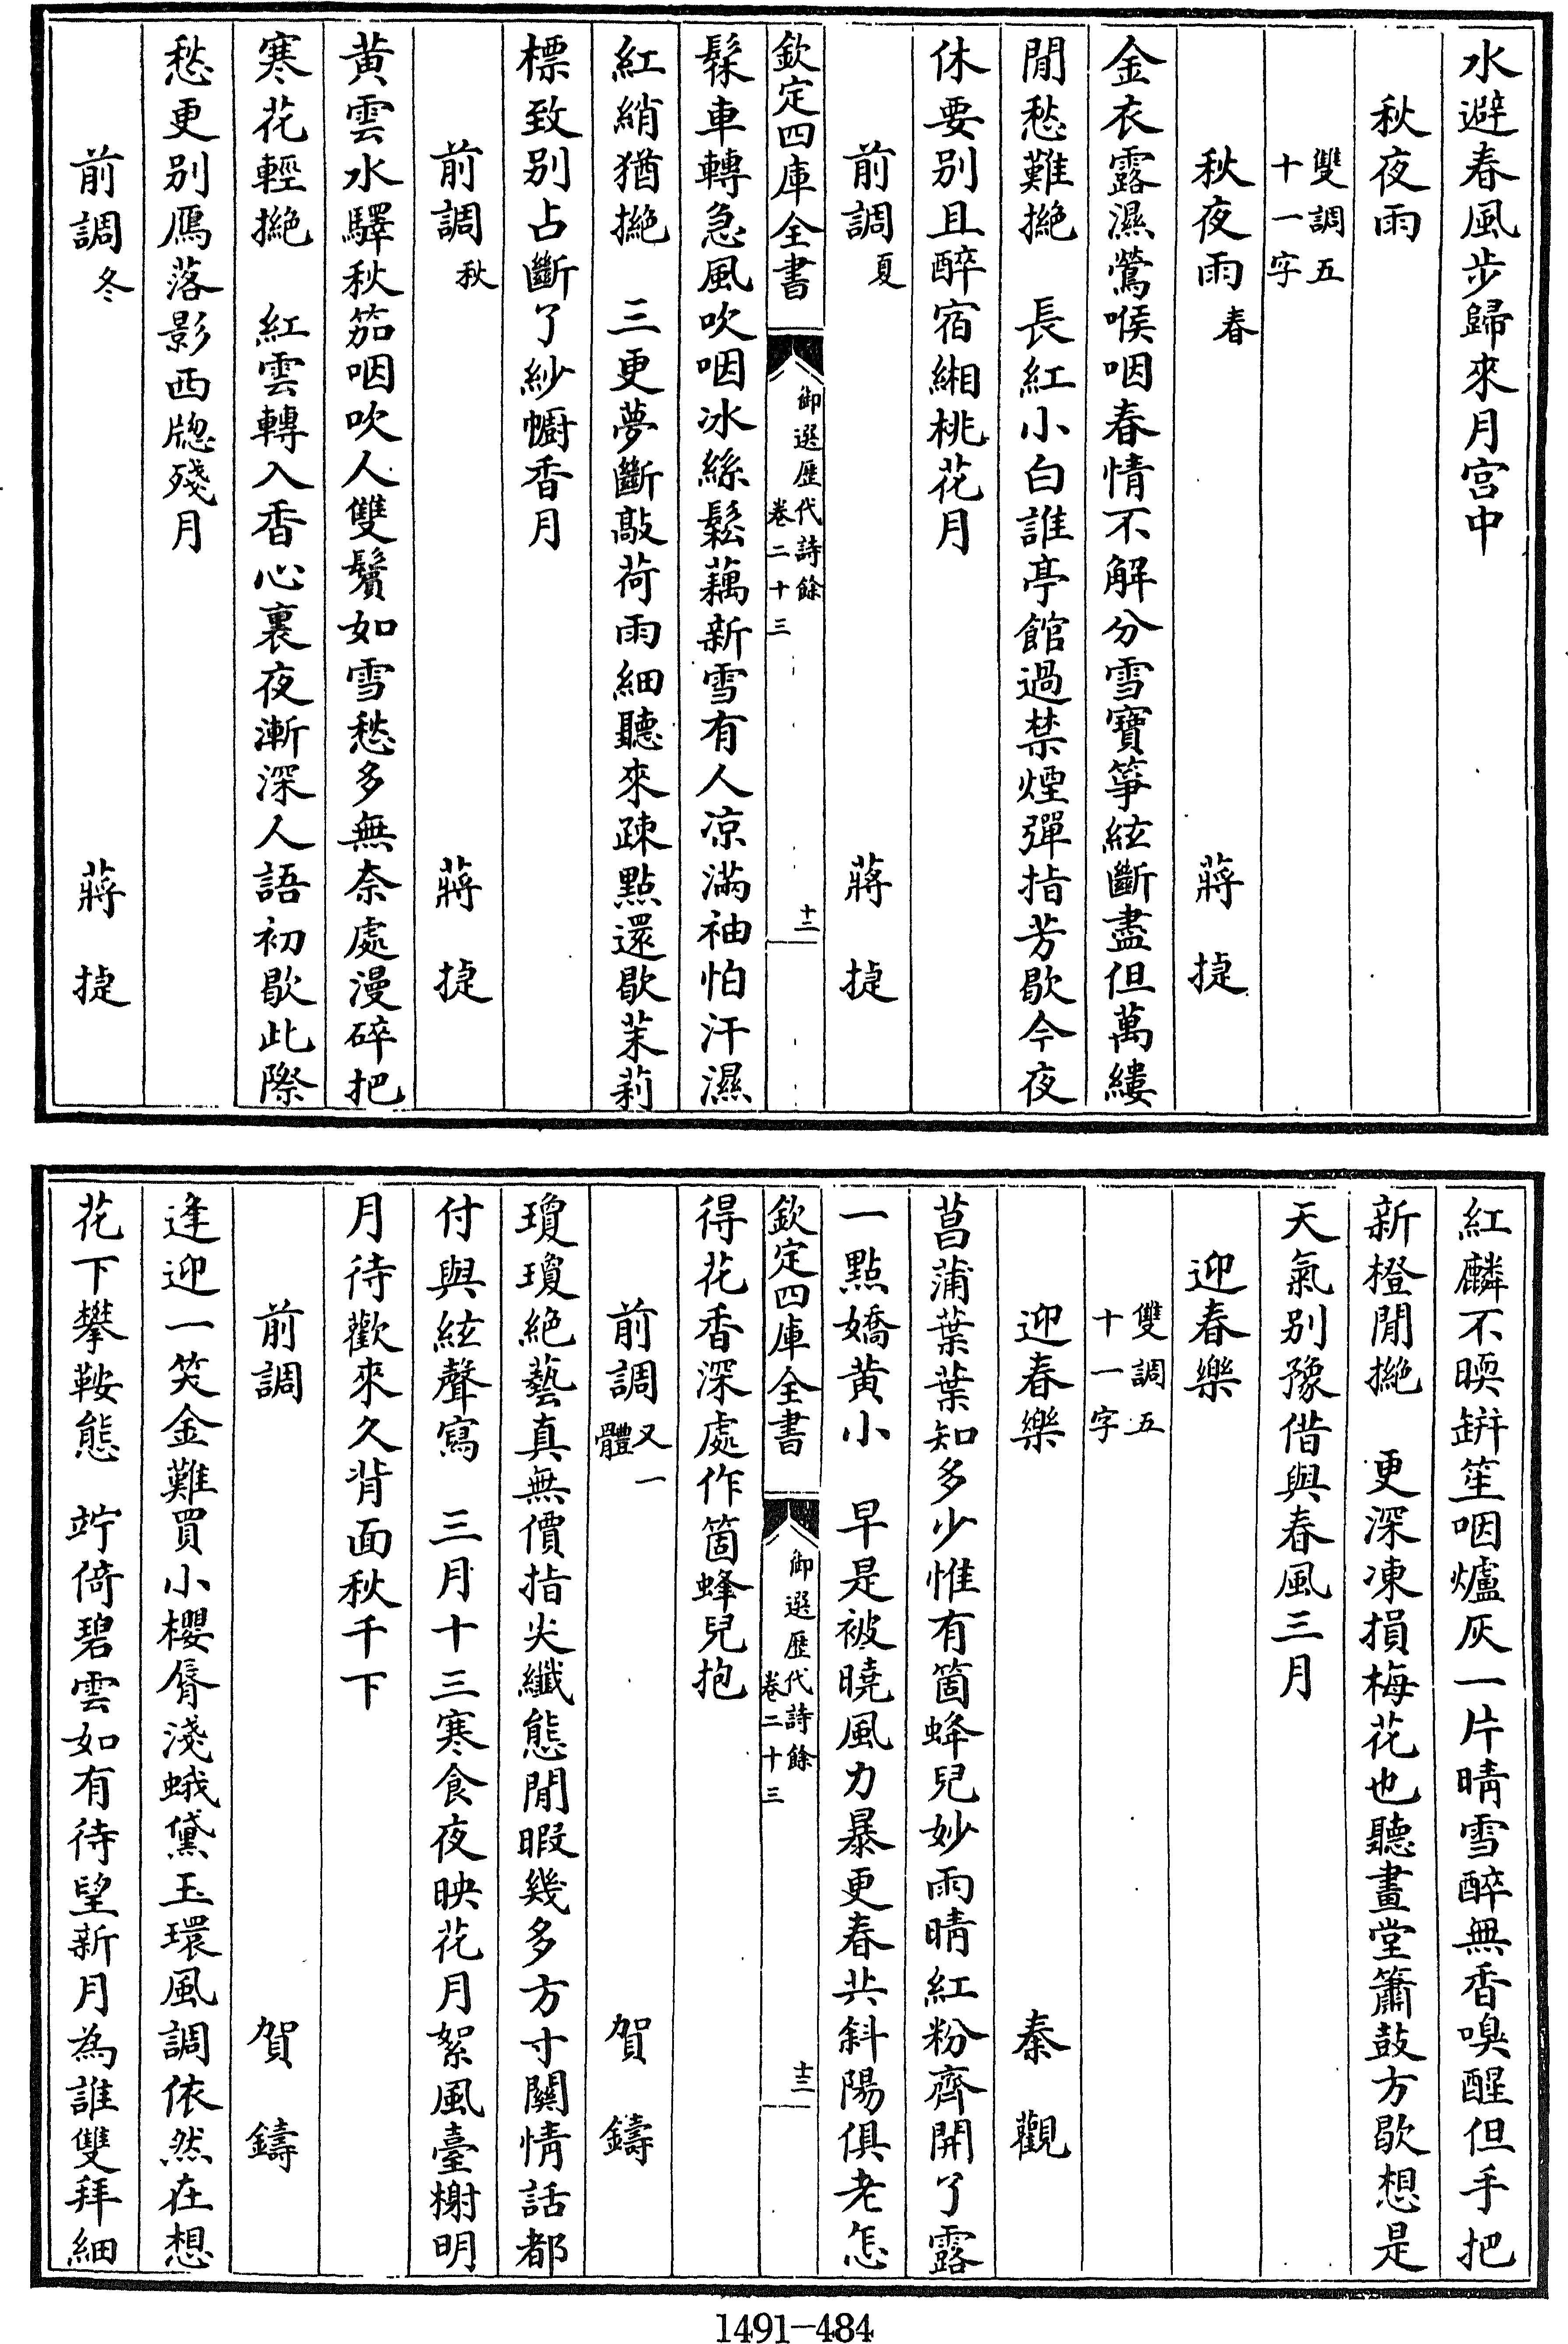 水避春風步歸來月宮中
秋夜雨
雙調五
十一字
秋夜雨 春 蔣 捷
金衣露濕鶯喉咽春情不解分雪寶箏絃斷盡但萬縷
閒愁難㧓 長紅小白誰亭館過禁煙彈指芳歇今夜
休要别且醉宿緗桃花月
前調 夏 蔣 捷
欽定四庫全書
御選歷代詩餘
卷二十三
十二
䌁車轉急風吹咽冰絲鬆藕新雪有人凉滿袖怕汗濕
紅綃猶㧓 三更夢斷敲荷雨細聽來疎點還歇茉莉
標致别占斷了紗㡡香月
前調 秋 蔣 捷
黄雲水驛秋笳咽吹人雙鬢如雪愁多無奈處漫碎把
寒花輕㧓 紅雲轉入香心裏夜漸深人語初歇此際
愁更别鴈落影西牎殘月
前調 冬 蔣 捷
紅麟不暝缾笙咽爐灰一片晴雪醉無香嗅醒但手把
新橙閒㧓 更深凍損梅花也聽畫堂簫鼓方歇想是
天氣别豫借與春風三月
迎春樂
雙調五
十一字
迎春樂 秦 觀
菖蒲葉葉知多少惟有箇蜂兒妙雨晴紅粉齊開了露
一點嬌黄小 早是被曉風力暴更春共斜陽俱老怎
欽定四庫全書
御選歷代詩餘
卷二十三
十三
得花香深處作箇蜂兒抱
前調 又一體 賀 鑄
瓊瓊絶藝真無價指尖纎態閒暇幾多方寸關情話都
付與絃聲寫 三月十三寒食夜映花月絮風臺榭明
月待歡來久背面秋千下
前調 賀 鑄
逢迎一笑金難買小櫻脣淺蛾黛玉環風調依然在想
花下攀鞍態 竚倚碧雲如有待望新月為誰雙拜細
1491—484